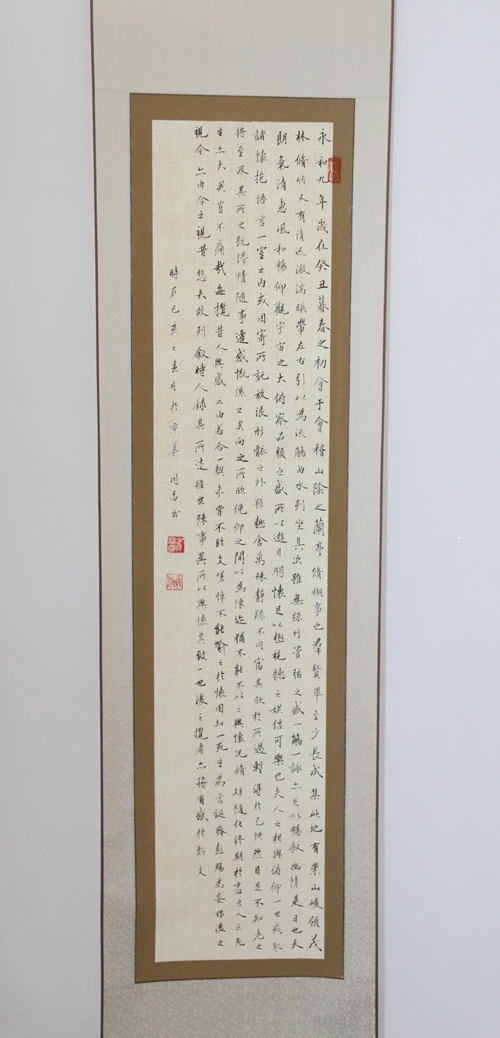 永和九年歲在癸丑暮春之初會于會稽山陰之蘭亭脩禊事也羣賢畢至少長咸集此地有崇山峻領茂
林脩竹又有清流激湍暎帶左右引以為流觴曲水列坐其次雖無絲竹管弦之盛一觴一詠亦足以暢敘幽情是日也天
朗氣清惠風和暢仰觀宇宙之大俯察品類之盛所以遊目騁懷足以極視聽之娛信可樂也夫人之相與俯仰一世或取
諸懷抱悟言一室之內或因寄所託放浪形骸之外雖趣舍萬殊靜躁不同當其欣於所遇暫得於己怏然自足不知老之
將至及其所之既惓情隨事遷感慨係之矣向之所欣俛仰之間以為陳迹猶不能不以之興懷況脩短隨化終期於盡古人云死
生亦大矣豈不痛哉每攬昔人興感之由若合一契未嘗不臨文嗟悼不能喻之於懷固知一死生為虛誕齊彭殤為妄作後之
視今亦由今之視昔悲夫故列敘時人錄其所述雖世殊事異所以興懷其致一也後之攬者亦將有感於斯文
時在己亥之春月於京 昌書